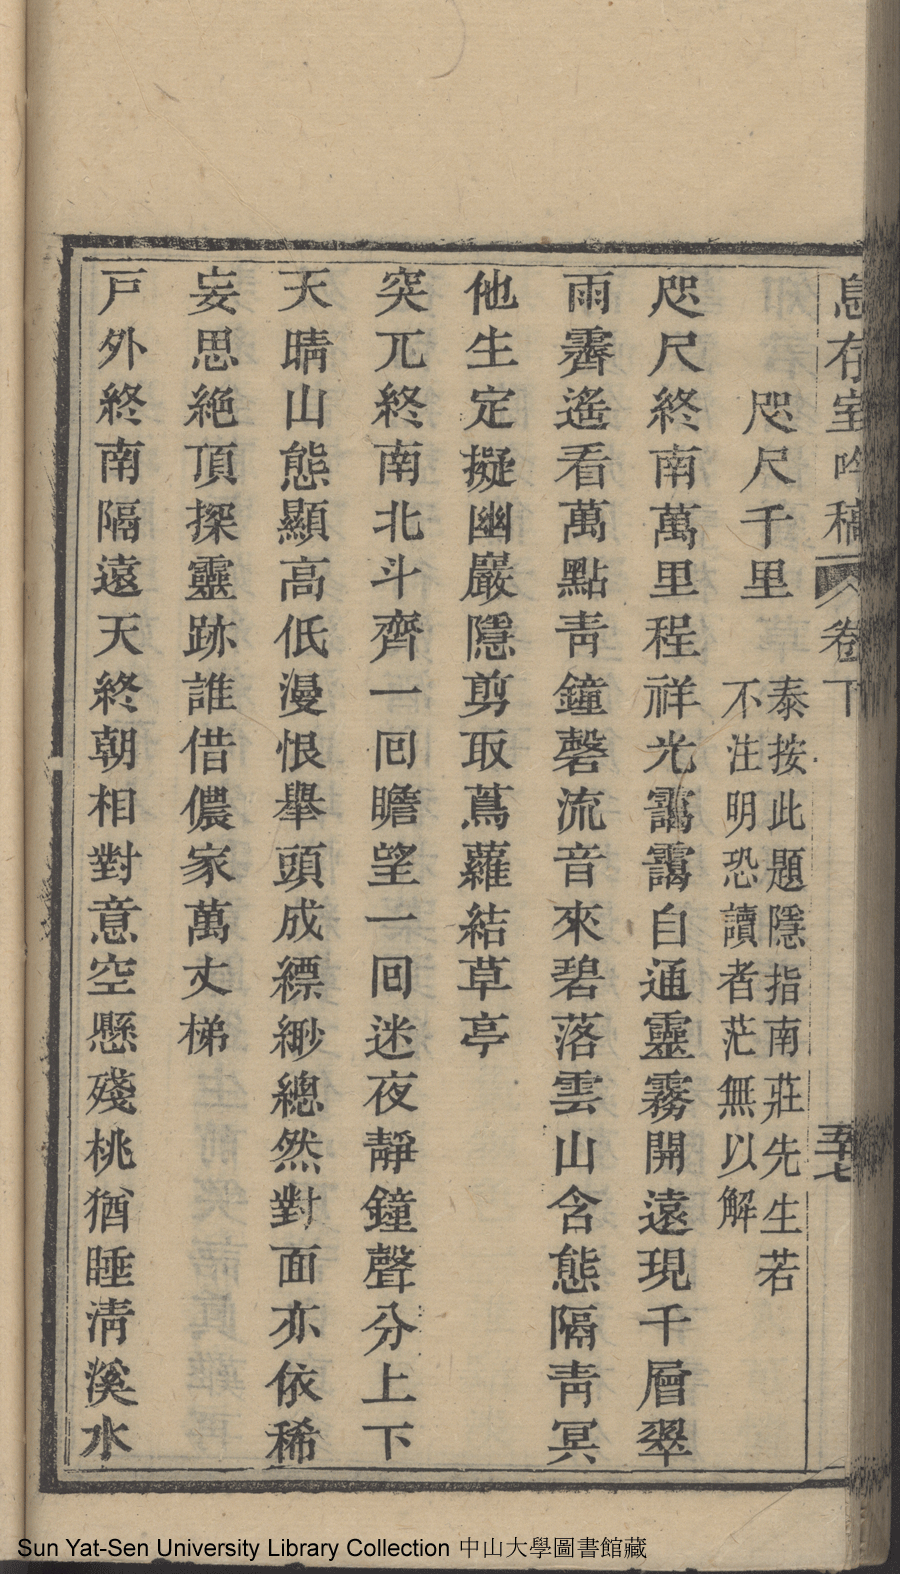 息存室吟稿 卷下 五十七
咫尺千里
泰按此題隱指南莊先生若
不注明恐讀者茫無以解
咫尺終南萬里程祥光靄靄自通靈霧開遠現千層翠
雨霽遙看萬點青鐘磬流音來碧落雲山含態隔青冥
他生定擬幽巖隱剪取蔦蘿結草亭
突兀終南北斗齊一回瞻望一回迷夜靜鐘聲分上下
天晴山態顯高低漫恨舉頭成縹緲總然對面亦依稀
妄思絕頂探靈跡誰借儂家萬丈梯
戶外終南隔遠天終朝相對意空懸殘桃猶睡清溪水
Sun Yat-Sen University Library Collection 中山大學圖書館藏